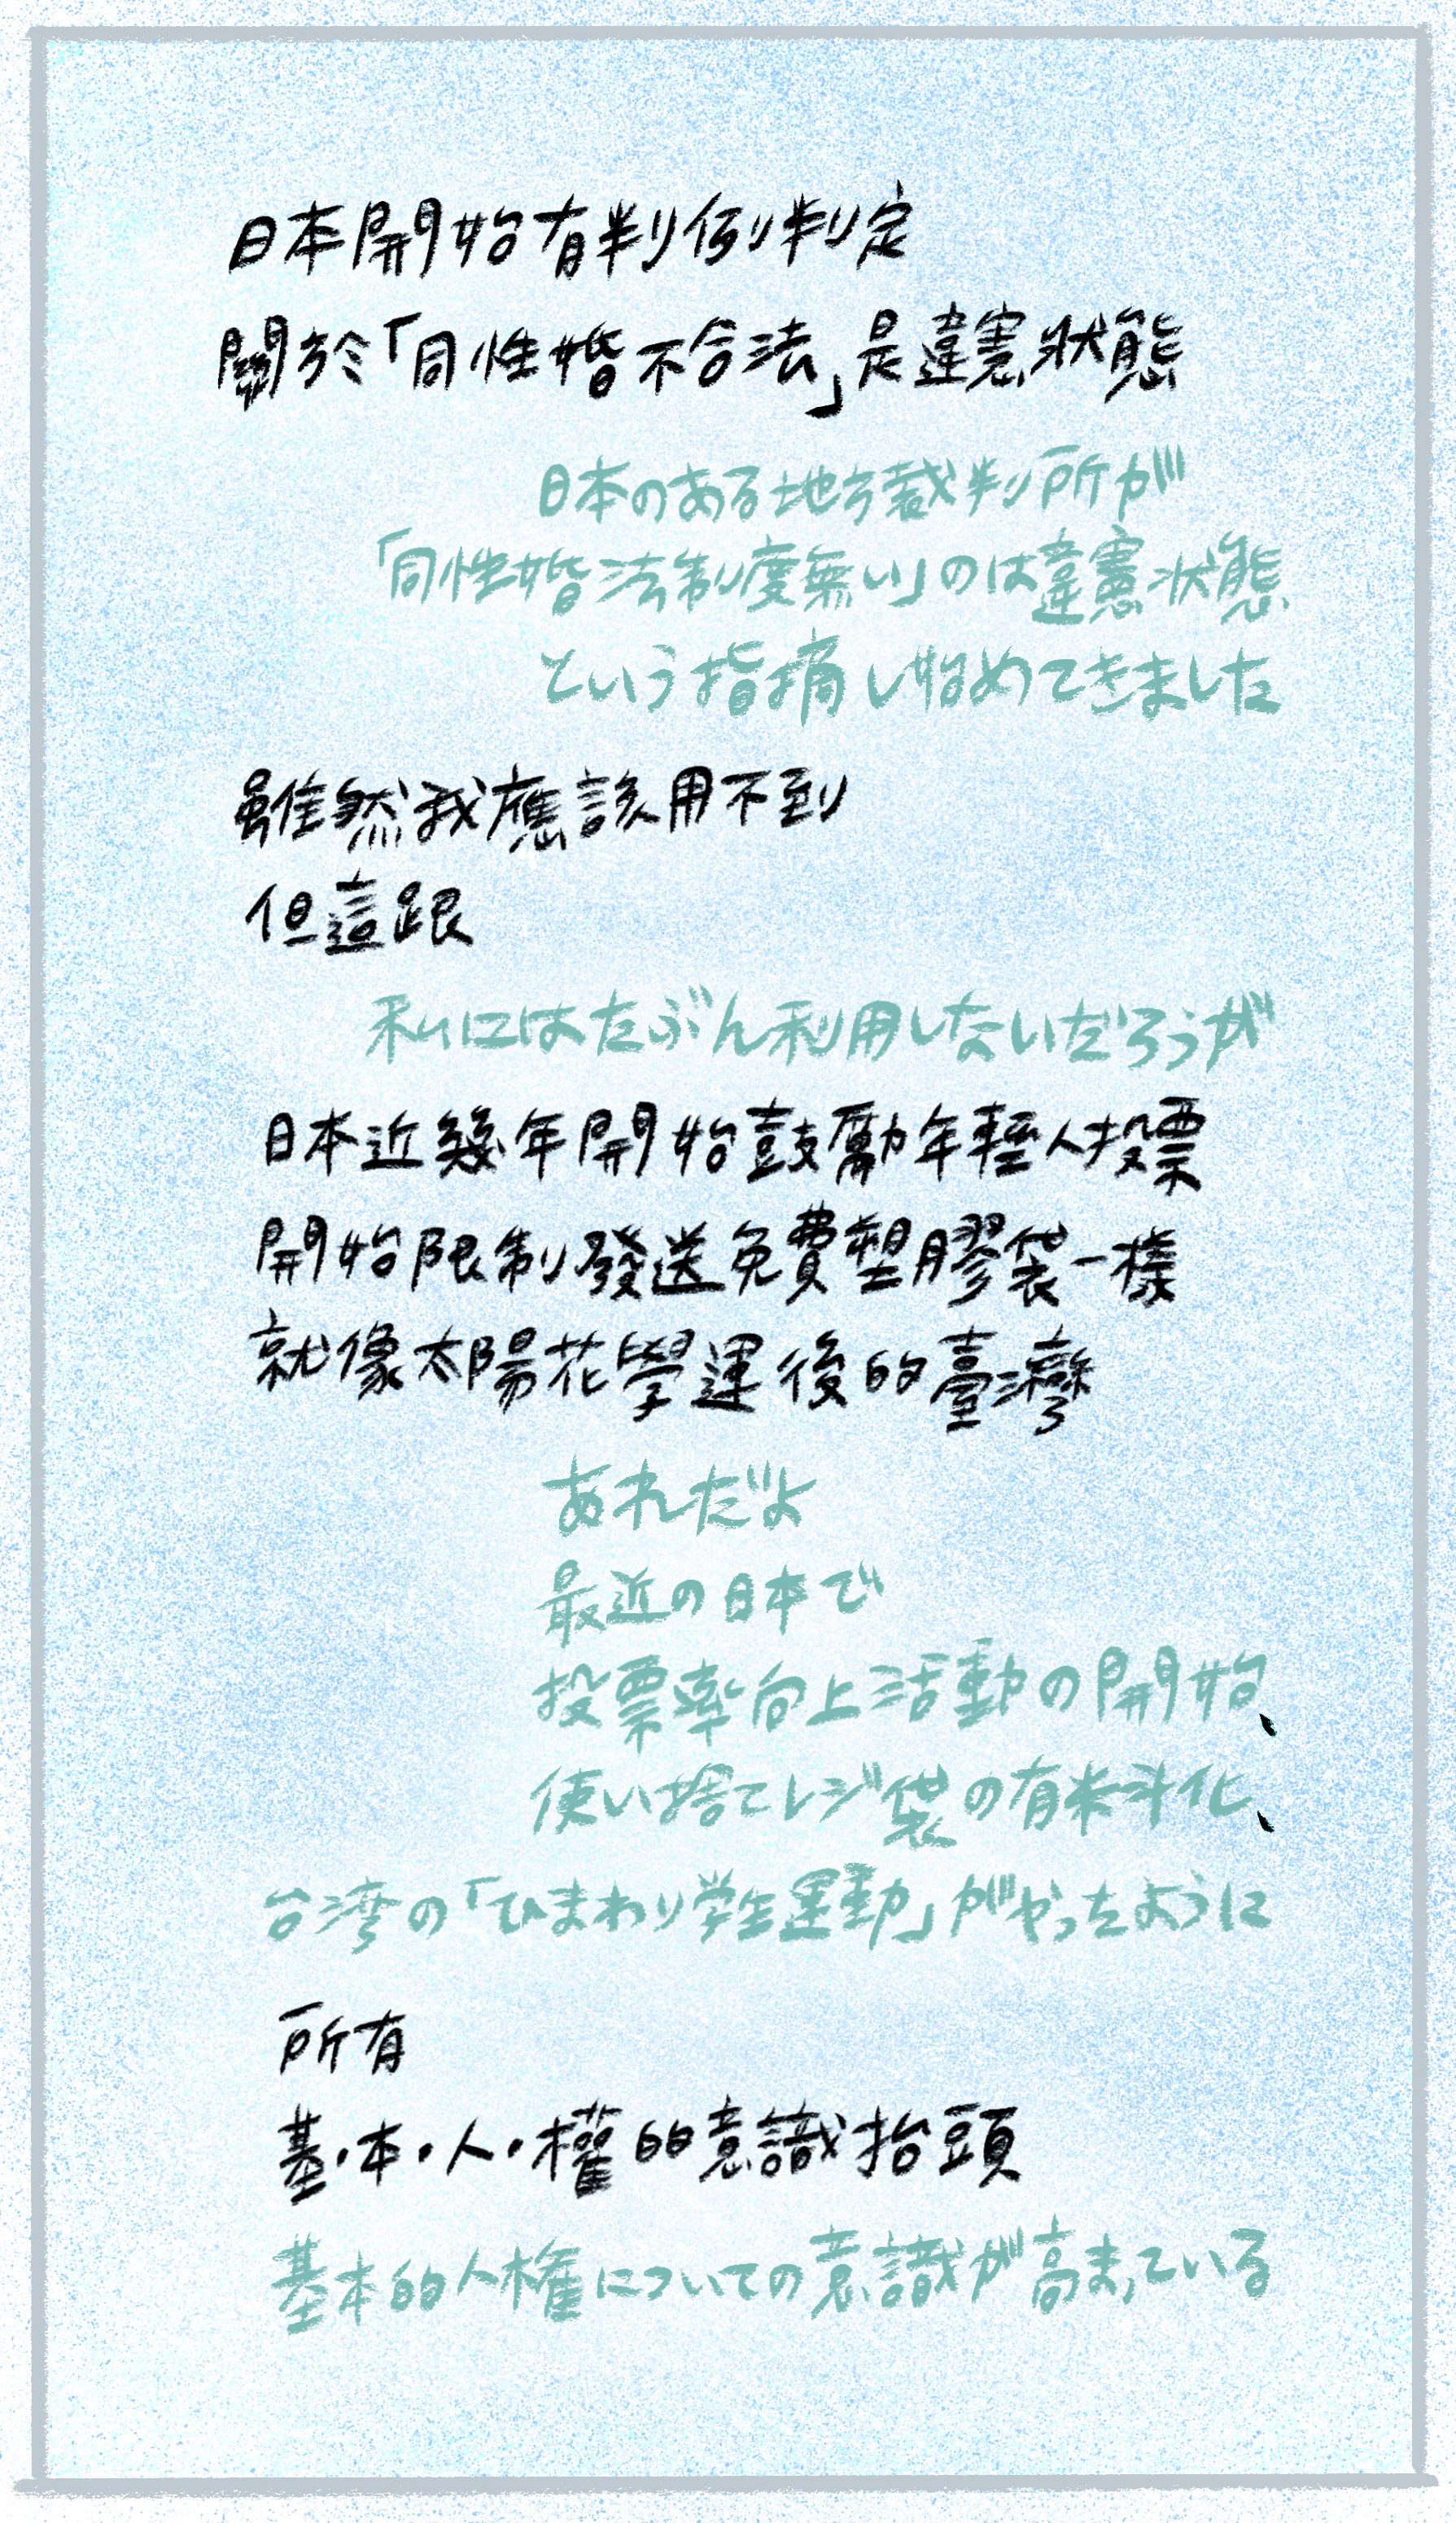 日本開始有判例判定
關於「同性婚不合法」是違憲狀態
日本のある地方裁判所が
「同性婚法制度無い」のは違憲状態
という指摘し始めてきました
雖然我應該用不到
但這跟
私にはたぶん利用しないだろうが
日本近幾年開始鼓勵年輕人投票
開始限制發送免費塑膠袋一樣
就像太陽花學運後的臺灣
あれだよ
最近の日本で
投票率向上活動の開始、
使い捨てレジ袋の有料化、
台湾の「ひまわり学生運動」がやったように
所有
基・本・人・權的意識抬頭
基本的人権についての意識が高まっている